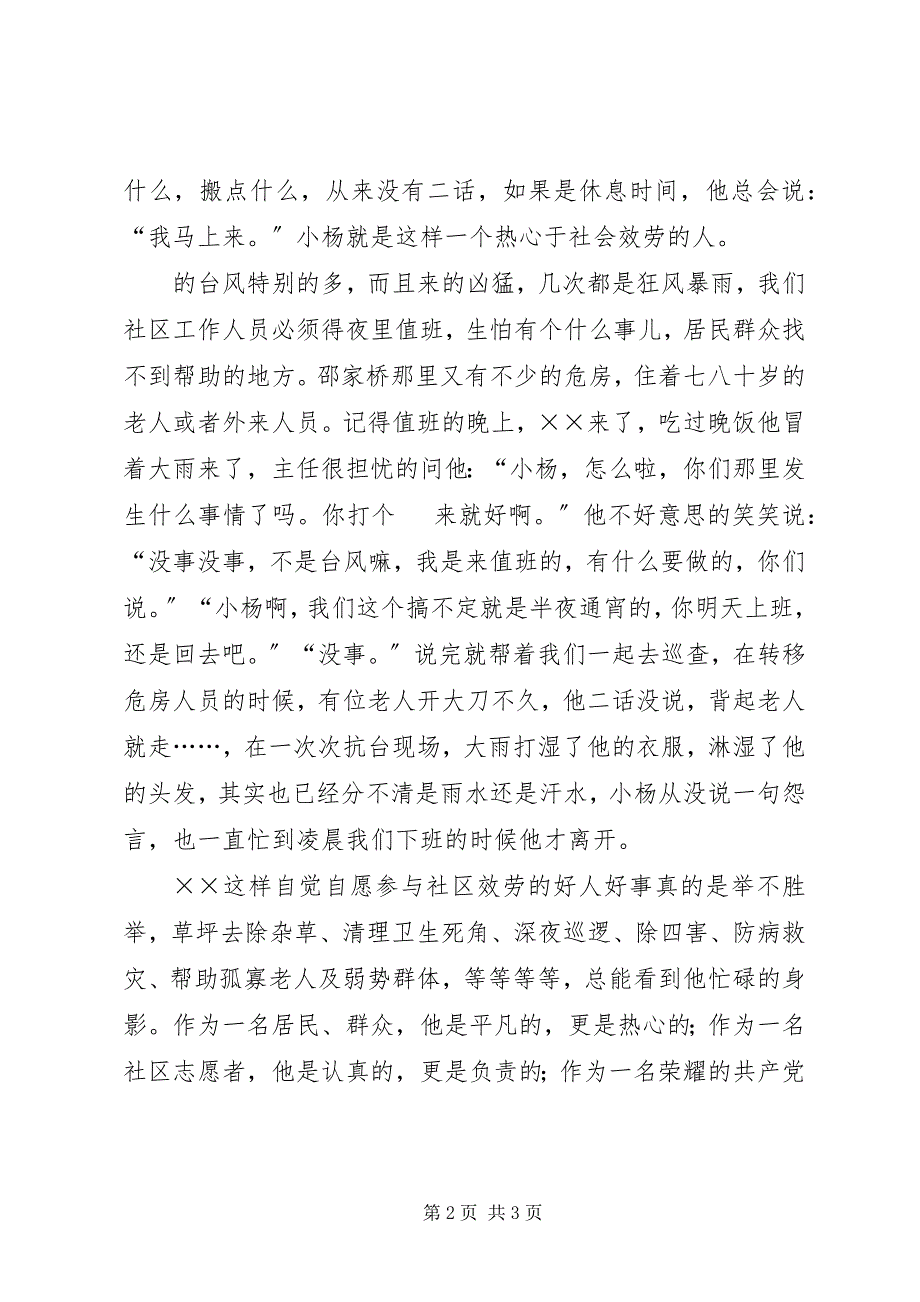 什么，搬点什么，从来没有二话，如果是休息时间，他总会说：
“我马上来。〞小杨就是这样一个热心于社会效劳的人。
的台风特别的多，而且来的凶猛，几次都是狂风暴雨，我们
社区工作人员必须得夜里值班，生怕有个什么事儿，居民群众找
不到帮助的地方。邵家桥那里又有不少的危房，住着七八十岁的
老人或者外来人员。记得值班的晚上，××来了，吃过晚饭他冒
着大雨来了，主任很担忧的问他：“小杨，怎么啦，你们那里发
生什么事情了吗。你打个 来就好啊。〞他不好意思的笑笑说：
“没事没事，不是台风嘛，我是来值班的，有什么要做的，你们
说。〞“小杨啊，我们这个搞不定就是半夜通宵的，你明天上班，
还是回去吧。〞“没事。〞说完就帮着我们一起去巡查，在转移
危房人员的时候，有位老人开大刀不久，他二话没说，背起老人
就走……，在一次次抗台现场，大雨打湿了他的衣服，淋湿了他
的头发，其实也已经分不清是雨水还是汗水，小杨从没说一句怨
言，也一直忙到凌晨我们下班的时候他才离开。
××这样自觉自愿参与社区效劳的好人好事真的是举不胜
举，草坪去除杂草、清理卫生死角、深夜巡逻、除四害、防病救
灾、帮助孤寡老人及弱势群体，等等等等，总能看到他忙碌的身
影。作为一名居民、群众，他是平凡的，更是热心的；作为一名
社区志愿者，他是认真的，更是负责的；作为一名荣耀的共产党
第 2 页 共 3 页